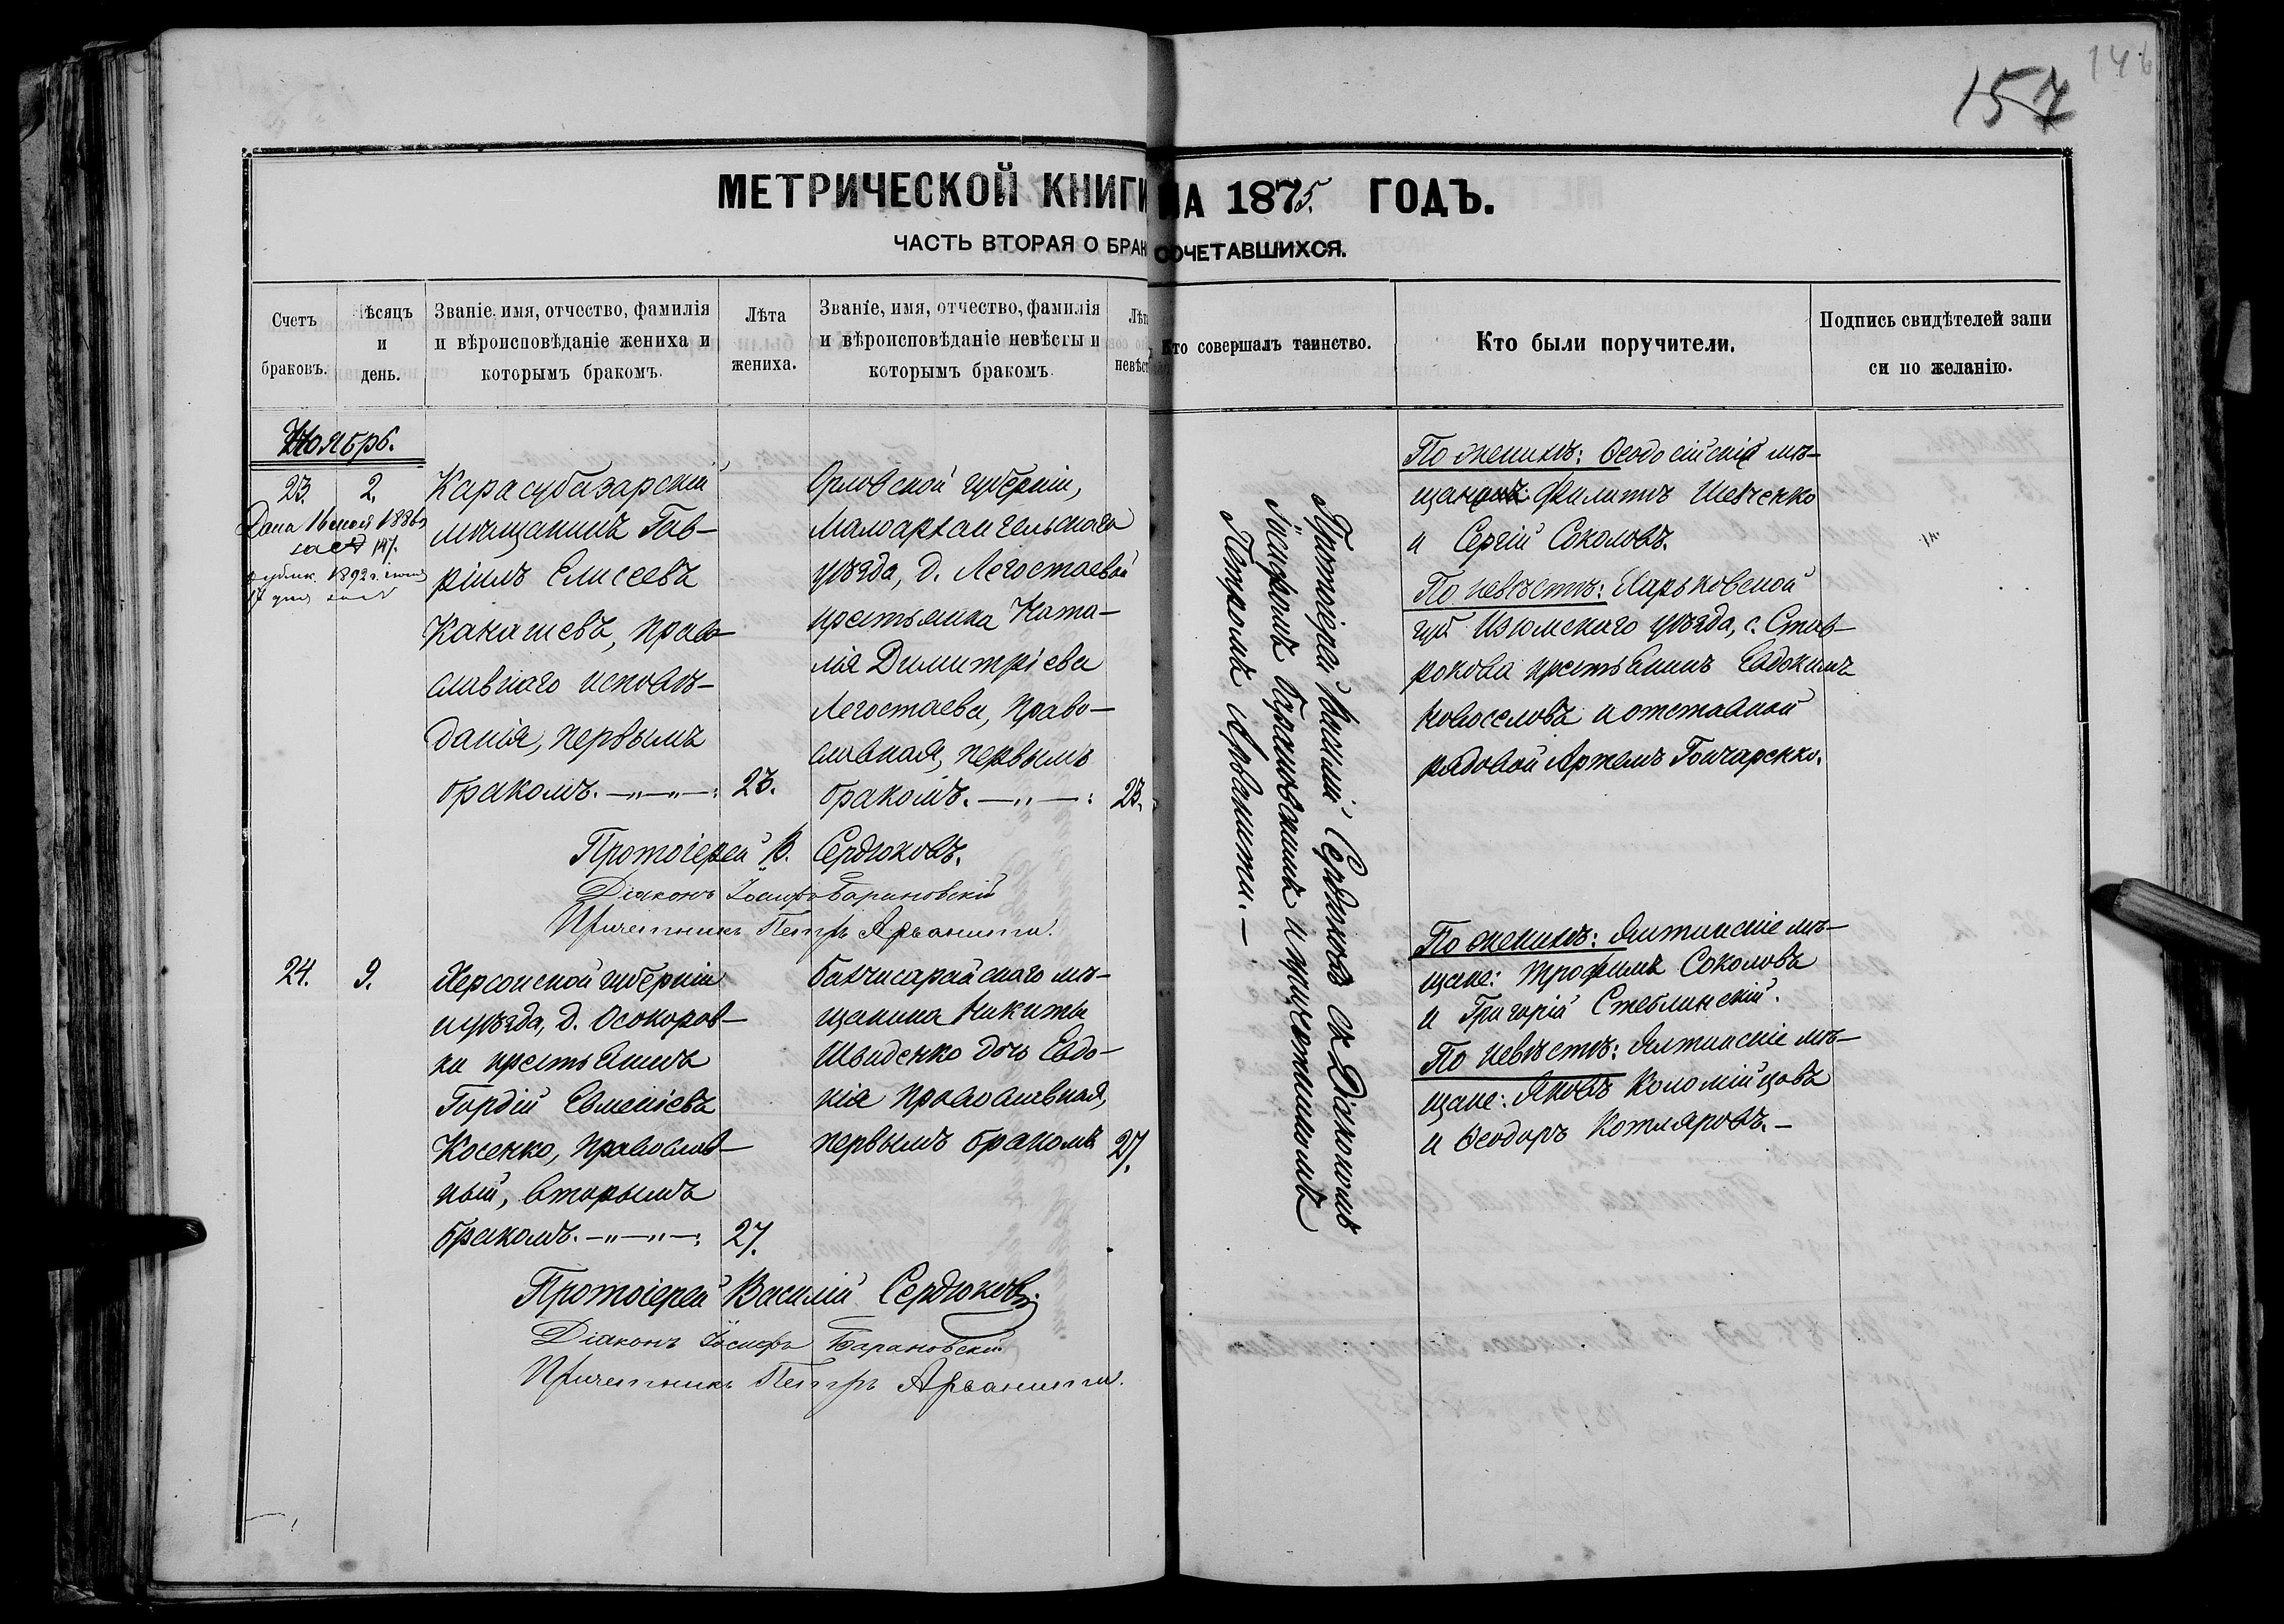 157
146
МЕТРИЧЕСКОЙ КНИГИ НА 1875. ГОДЪ.
ЧАСТЬ ВТОРАЯ О БРАКОСОЧЕТАВШИХСЯ.
Счетъ
браковъ.
Мѣсяцъ
и
день.
Званіе, имя, отчество, фамилія
и вѣроисповѣданіе жениха и
которымъ бракомъ.
Лѣта
жениха.
Званіе, имя, отчество, фамилія
и вѣроисповѣданіе невѣсты и
которымъ бракомъ.
Лѣта
невѣст
Кто совершалъ таинство.
Кто были поручители.
Подпись свидѣтелей запи
си по желанію.
Ноябрь.
23. 2.
Дана 16 1886
1892 г.
Карасубазарскій
мѣщанинъ Гав-
ріилъ Елисеевъ
Канашевъ, право-
славнаго исповѣ-
данія, первымъ
бракомъ. —"—"—: 23.
Орловской губерніи,
Малоархангельскаго
уѣзда, д. Легостаевой
крестьянка Ната-
лія Димитріева
Легостаева, право-
славная, первымъ
бракомъ. —"—: 23.
Протоіерей Василій Сердюковъ съ Діакономъ
Іосифомъ Барановскимъ и причетникомъ
Петромъ Арванити.—
По женихѣ: Ѳеодосійскіе мѣ-
щане: Филиппъ Шевченко
и Сергій Соколовъ.
По невѣстѣ: Харьковской
губ. Изюмскаго уѣзда, с. Став-
рокова крестьянинъ Евдокимъ
Новоселовъ и отставной
рядовой Артемъ Гончаренко.
Протоіерей В. Сердюковъ.
Діаконъ Іосифъ Барановскій
Причетникъ Петръ Арванити.
24. 9.
Херсонской губерніи
и уѣзда, д. Осокоров-
ки крестьянинъ
Гордій Евменіевъ
Косенко, православ-
ный, вторымъ
бракомъ. —"—"—: 27.
Бахчисарайскаго мѣ-
щанина Никиты
Швиденко дочь Евдо-
кія православная,
первымъ бракомъ 27.
По женихѣ: Ялтинскіе мѣ-
щане: Трофимъ Соколовъ
и Григорій Стеблинскій.
По невѣстѣ: Ялтинскіе мѣ-
щане: Яковъ Коломійцовъ
и Ѳеодоръ Котляровъ.—
Протоіерей Василій Сердюковъ.
Діаконъ Іосифъ Барановскій
Причетникъ Петръ Арванити.